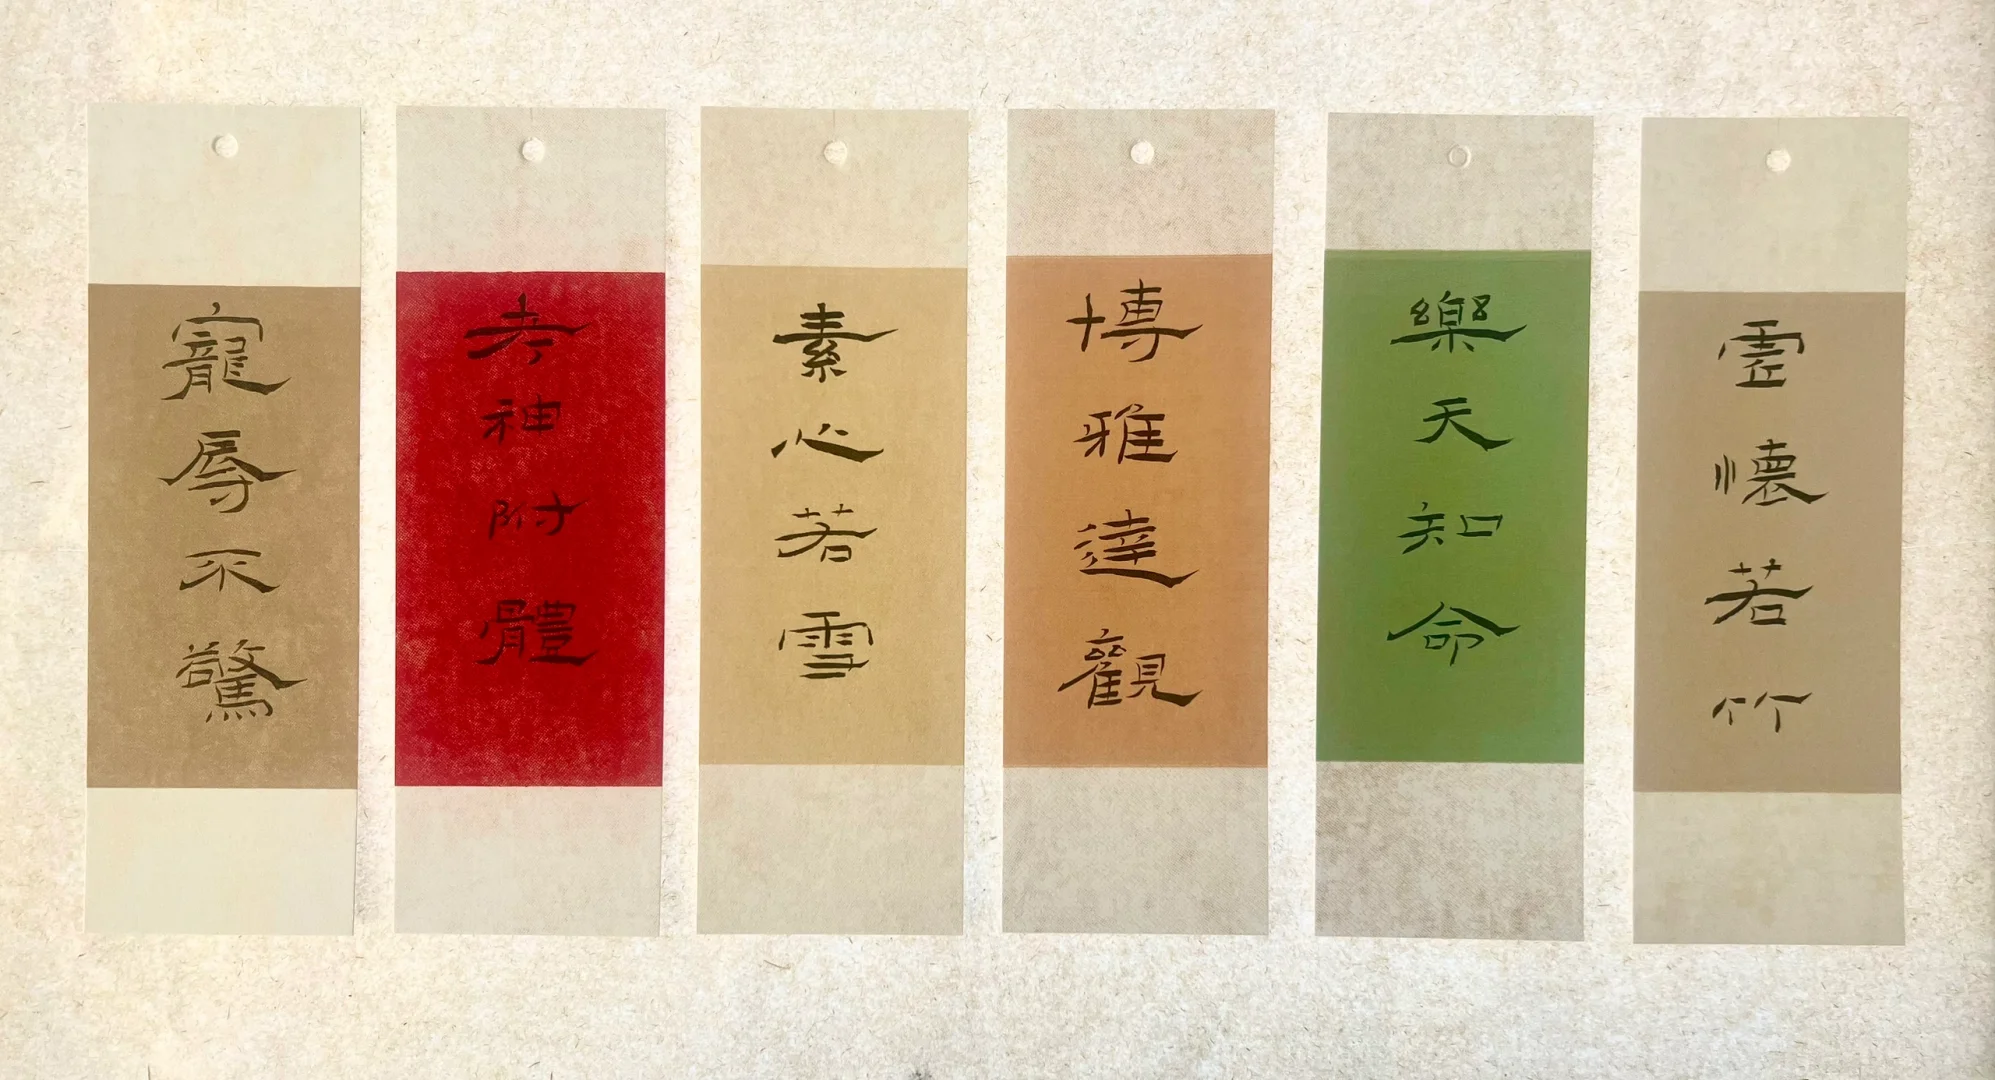 寵辱不驚
考神附體
素心若雪
博雅達觀
樂天知命
虛懷若竹